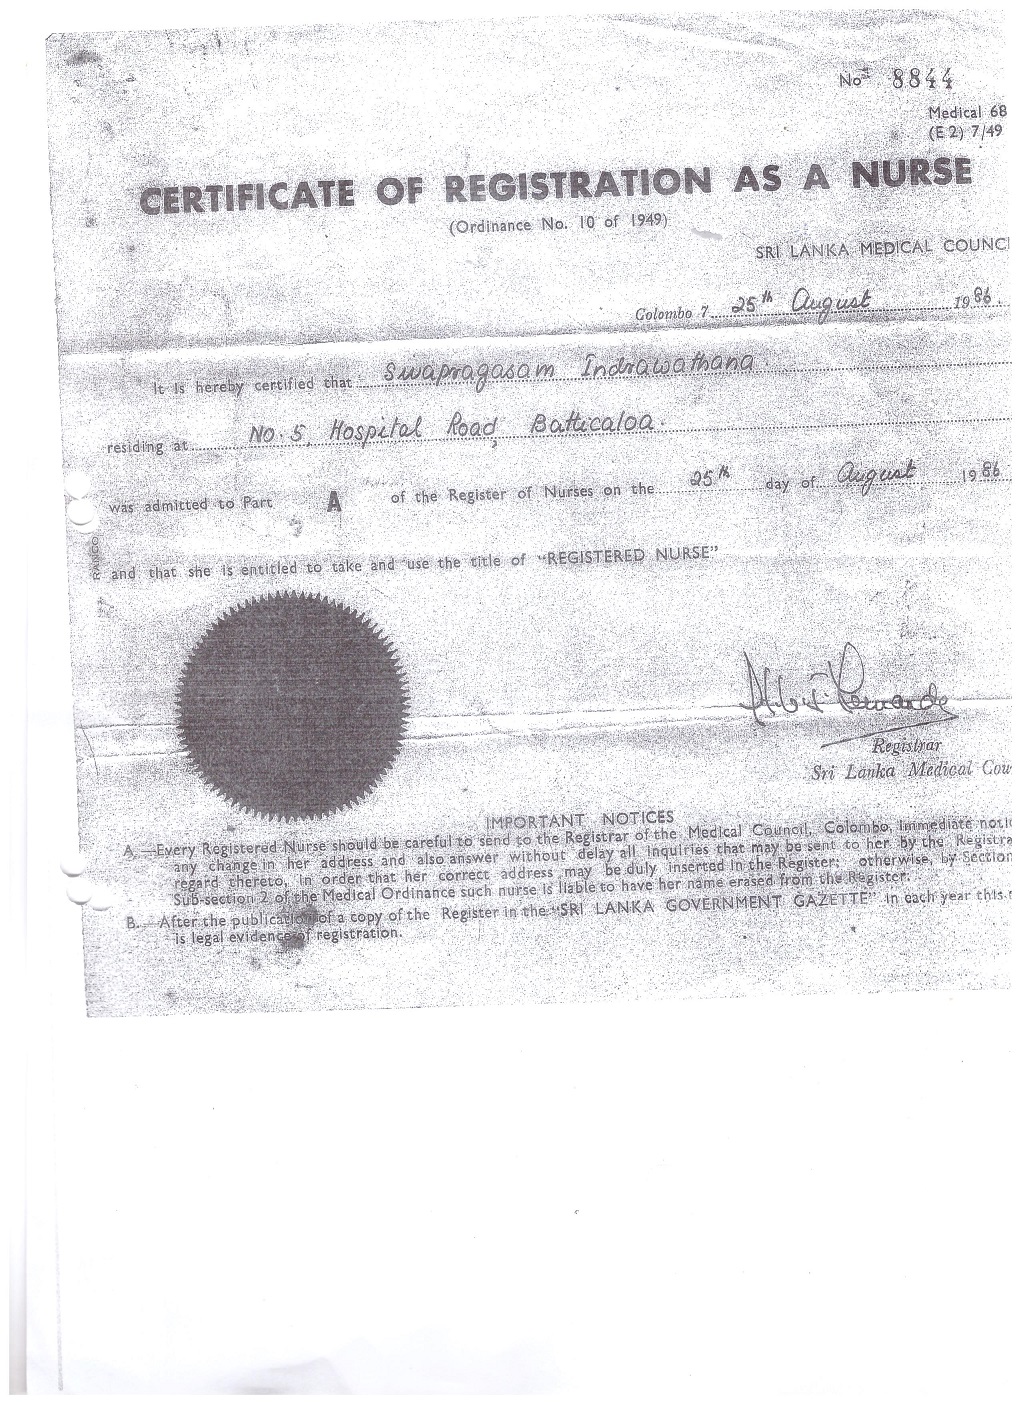 No 8844
Medical 68
(E 2) 7/49
CERTIFICATE OF REGISTRATION AS A NURSE
(Ordinance No. 10 of 1949)
SRI LANKA MEDICAL COUNCI
Colombo 7 25th August 1986.
It is hereby certified that Sivapragasam Indrawathana
residing at No. 5, Hospital Road, Batticaloa.
was admitted to Part A of the Register of Nurses on the 25th day of August 1986
and that she is entitled to take and use the title of "REGISTERED NURSE"
Registrar
Sri Lanka Medical Cou
IMPORTANT NOTICES
A.—Every Registered Nurse should be careful to send to the Registrar of the Medical Council, Colombo, immediate noti
any change in her address and also answer without delay all inquiries that may be sent to her by the Registra
regard thereto, in order that her correct address may be duly inserted in the Register; otherwise, by Section
Sub-section 2 of the Medical Ordinance such nurse is liable to have her name erased from the Register.
B.—After the publication of a copy of the Register in the "SRI LANKA GOVERNMENT GAZETTE" in each year this
is legal evidence of registration.